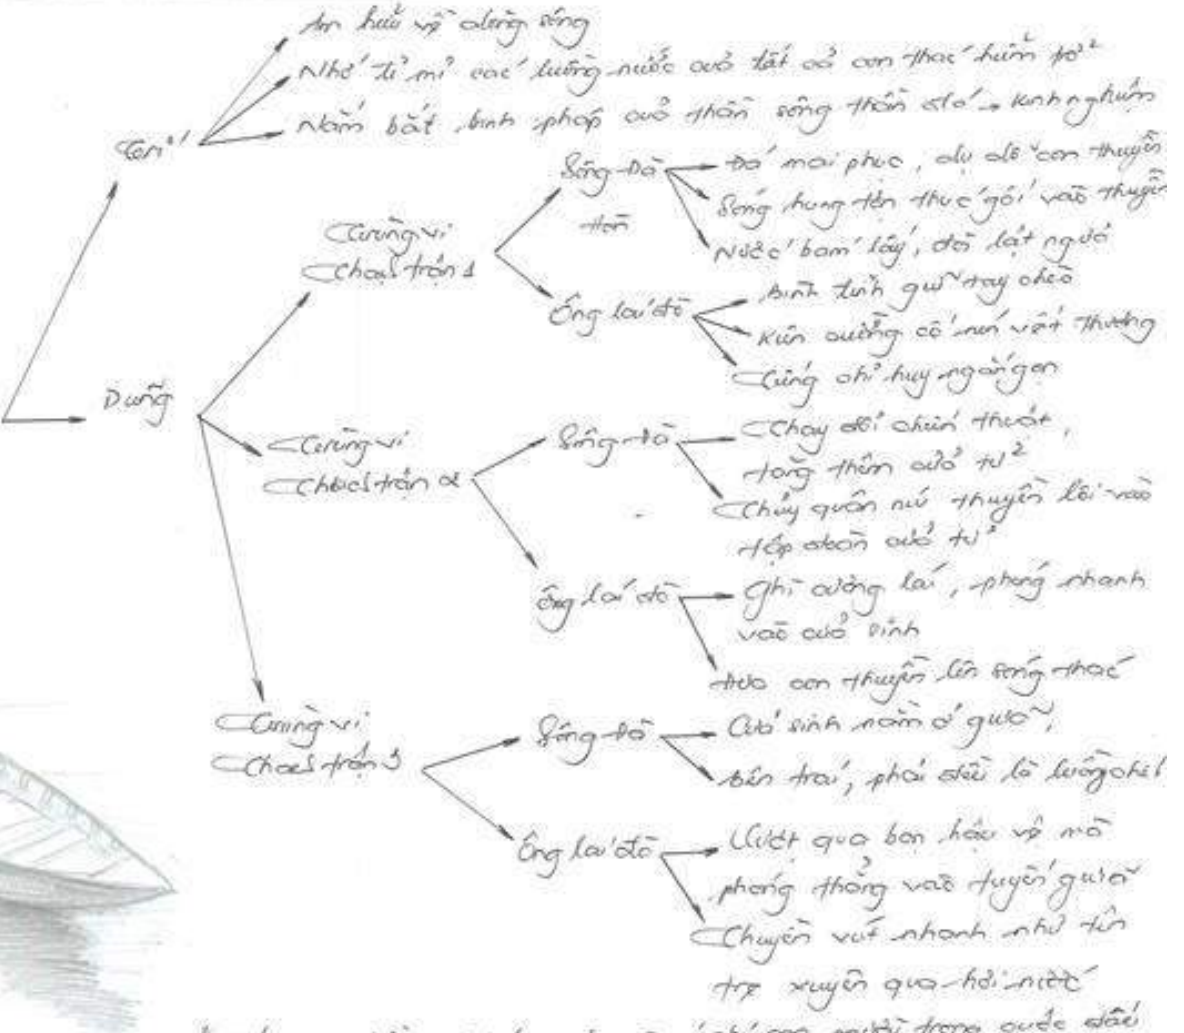 Am hiểu về dòng sông
Nhớ tỉ mỉ các luồng nước của tất cả con thác hiểm trở
Nắm bắt binh pháp của thần sông thần đá → kinh nghiệm
Trí
Sông Đà
Đá mai phục, dụ dỗ con thuyền
Sóng hung tợn thúc gối vào thuyền
Nước bám lấy, đòi lật ngửa
Trùng vi
Thạch trận 1
Ông lái đò
Bình tĩnh giữ tay chèo
Kiên cường cố nén vết thương
Tiếng chỉ huy ngắn gọn
Dũng
Trùng vi
Thạch trận 2
Sông Đà
Thay đổi chiến thuật,
tăng thêm cửa tử
Thủy quân níu thuyền lôi vào
tập đoàn cửa tử
Ông lái đò
Ghì cương lái, phóng nhanh
vào cửa sinh
Đưa con thuyền lên sóng thác
Trùng vi
Thạch trận 3
Sông Đà
Cửa sinh nằm ở giữa,
Bên trái, phải đều là luồng chết
Ông lái đò
Vượt qua bọn hậu vệ mà
phóng thẳng vào tuyến giữa
Thuyền vút nhanh như tên
tre xuyên qua hơi nước
con người trong cuộc đấu